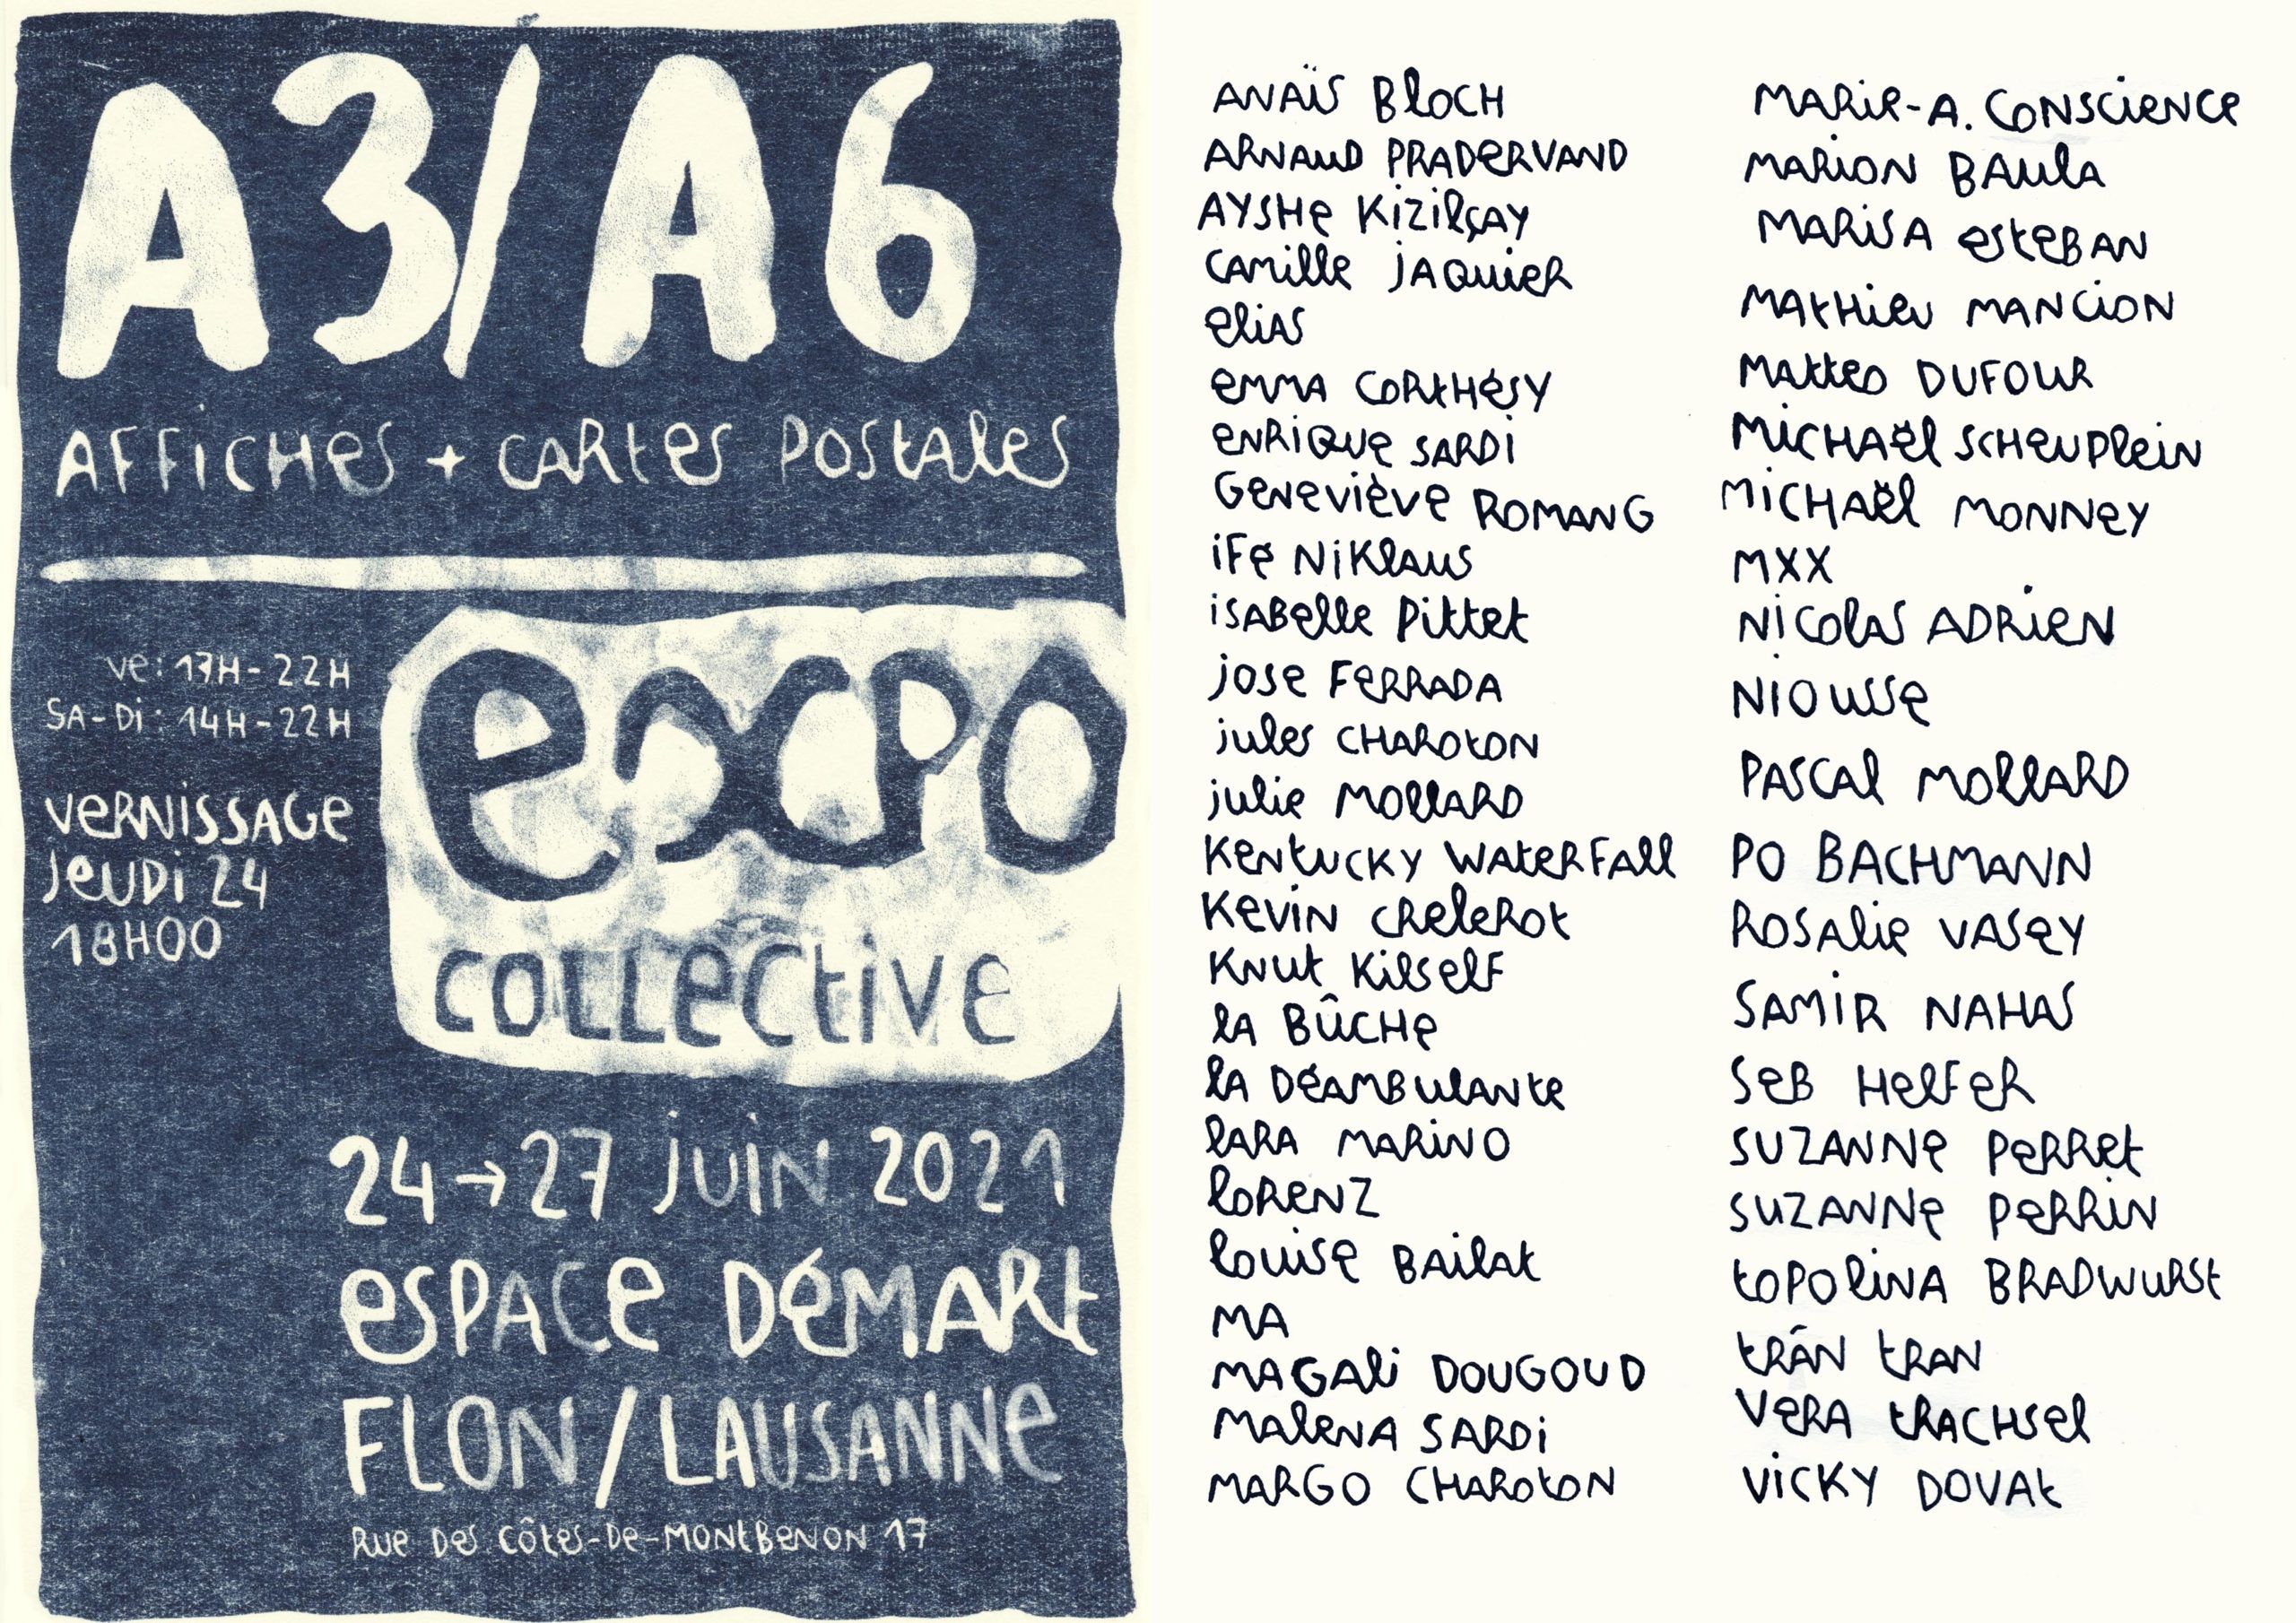 A3/A6
AFFICHES + CARTES POSTALES
VE: 17H-22H
SA-DI: 14H-22H
VERNISSAGE
JEUDI 24
18H00
EXPO
COLLECTIVE
24→27 JUIN 2021
ESPACE DÉMART
FLON/LAUSANNE
RUE DES CÔTES-DE-MONTBENON 17
ANAÏS BLOCH
ARNAUD PRADERVAND
AYSHE KIZILÇAY
CAMILLE JAQUIER
ELIAS
EMMA CORTHÉSY
ENRIQUE SARDI
GENEVIÈVE ROMANG
IFÉ NIKLAUS
ISABELLE PITTET
JOSE FERRADA
JULES CHAROTON
JULIE MOLLARD
KENTUCKY WATERFALL
KEVIN CRELEROT
KNUT KILSELF
LA BÛCHE
LA DÉAMBULANTE
LARA MARINO
LORENZ
LOUISE BAILAT
MA
MAGALI DOUGOUD
MALENA SARDI
MARGO CHAROTON
MARIE-A. CONSCIENCE
MARION BAULA
MARISA ESTEBAN
MATHIEU MANCION
MATTEO DUFOUR
MICHAËL SCHEUPLEIN
MICHAËL MONNEY
MXX
NICOLAS ADRIEN
NIOUSSE
PASCAL MOLLARD
PO BACHMANN
ROSALIE VASEY
SAMIR NAHAS
SEB HELFER
SUZANNE PERRET
SUZANNE PERRIN
TOPOLINA BRADWURST
TRÂN TRAN
VERA TRACHSEL
VICKY DOVAT